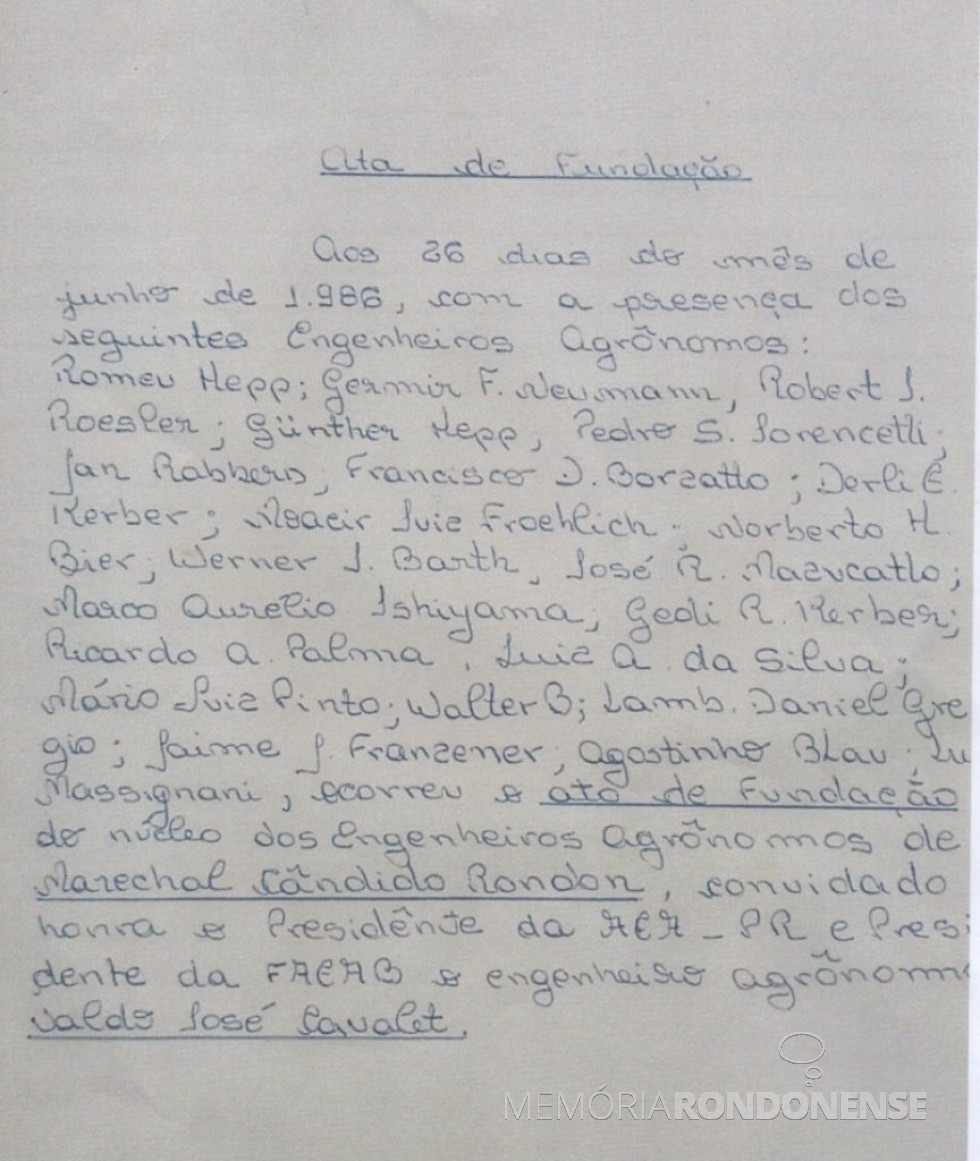 Ata de Fundação
Aos 26 dias do mês de
junho de 1.986, com a presença dos
seguintes Engenheiros Agrônomos:
Romeu Hepp; Germir F. Neumann, Robert J.
Roesler; Günther Hepp, Pedro S. Lorencetti,
Jan Rabbers, Francisco D. Borzatto; Derli E.
Kerber; Moacir Luiz Froehlich; Norberto H.
Bier; Werner J. Barth, José R. Mazucatto;
Marco Aurélio Ishiyama; Gedi R. Kerber;
Ricardo A. Palma, Luiz A. da Silva;
Mário Luiz Pinto; Walter B; Lamb. Daniel Gre
gio; Jaime J. Franzener; Agostinho Blau; Lu
Massignani, ocorreu o ato de Fundação
do núcleo dos Engenheiros Agrônomos de
Marechal Cândido Rondon, convidado
honra o Presidênte da AEA - PR e Presi
dente da FAEAB o engenheiro agrônomo
valdo José Cavalet.
MEMÓRIARONDONENSE